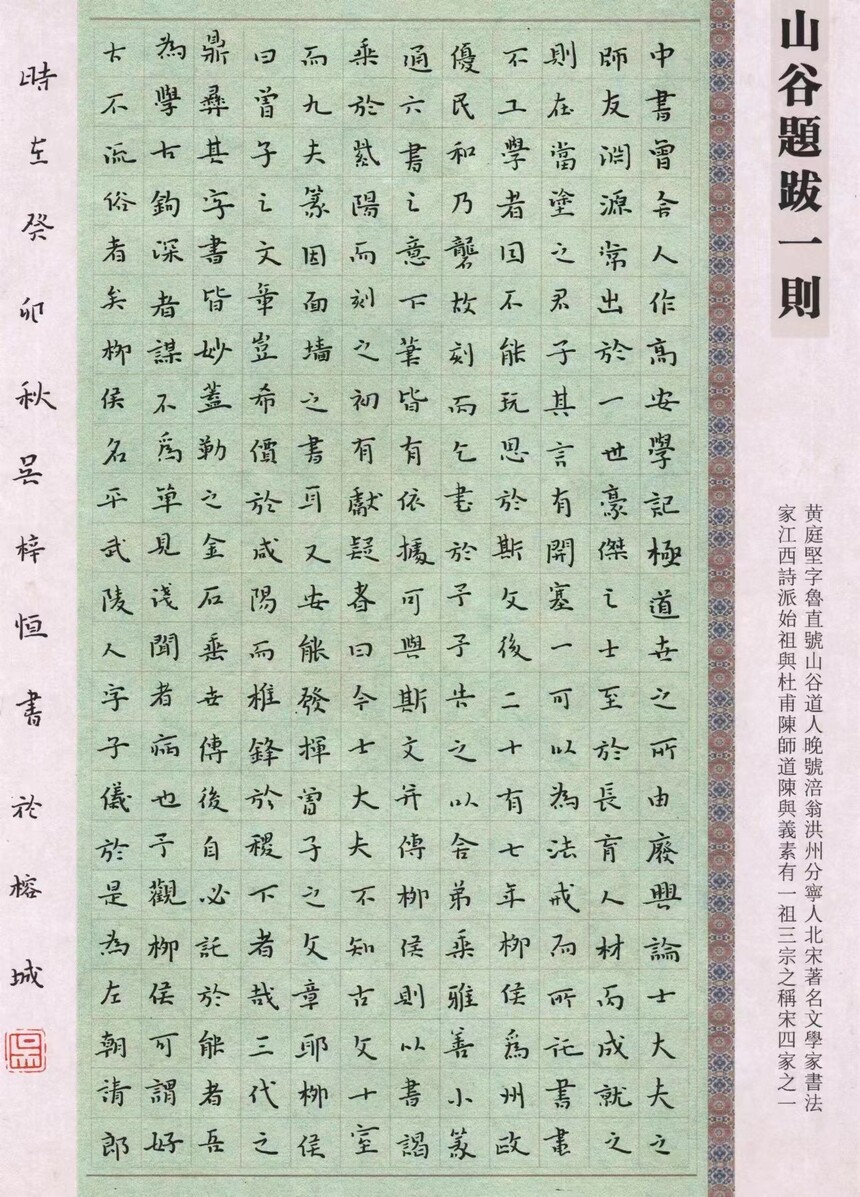 山谷題跋一則
黄庭堅字魯直號山谷道人晚號涪翁洪州分寧人北宋著名文學家書法
家江西詩派始祖與杜甫陳師道陳與義素有一祖三宗之稱宋四家之一
中書曾舍人作高安學記極道世之所由廢興論士大夫之
師友淵源常出於一世豪傑之士至於長育人材而成就之
則在當塗之君子其言有開塞一可以為法戒而所託書畫
不工學者因不能玩思於斯文後二十有七年柳侯為州政
優民和乃礱故刻而乞書於予予告之以舍弟乘雅善小篆
通六書之意下筆皆有依據可與斯文并傳柳侯則以書謁
乘於紫陽而刻之初有獻疑者曰今士大夫不知古文十室
而九夫篆因面墻之書耳又安能發揮曾子之文章耶柳侯
曰曾子之文章豈希價於咸陽而椎鋒於稷下者哉三代之
鼎彝其字書皆妙蓋勒之金石垂世傳後自必託於能者吾
為學古鉤深者謀不為單見淺聞者病也予觀柳侯可謂好
古不流俗者矣柳侯名平武陵人字子儀於是為左朝請郎
時在癸卯秋吳梓恒書於榕城
吳